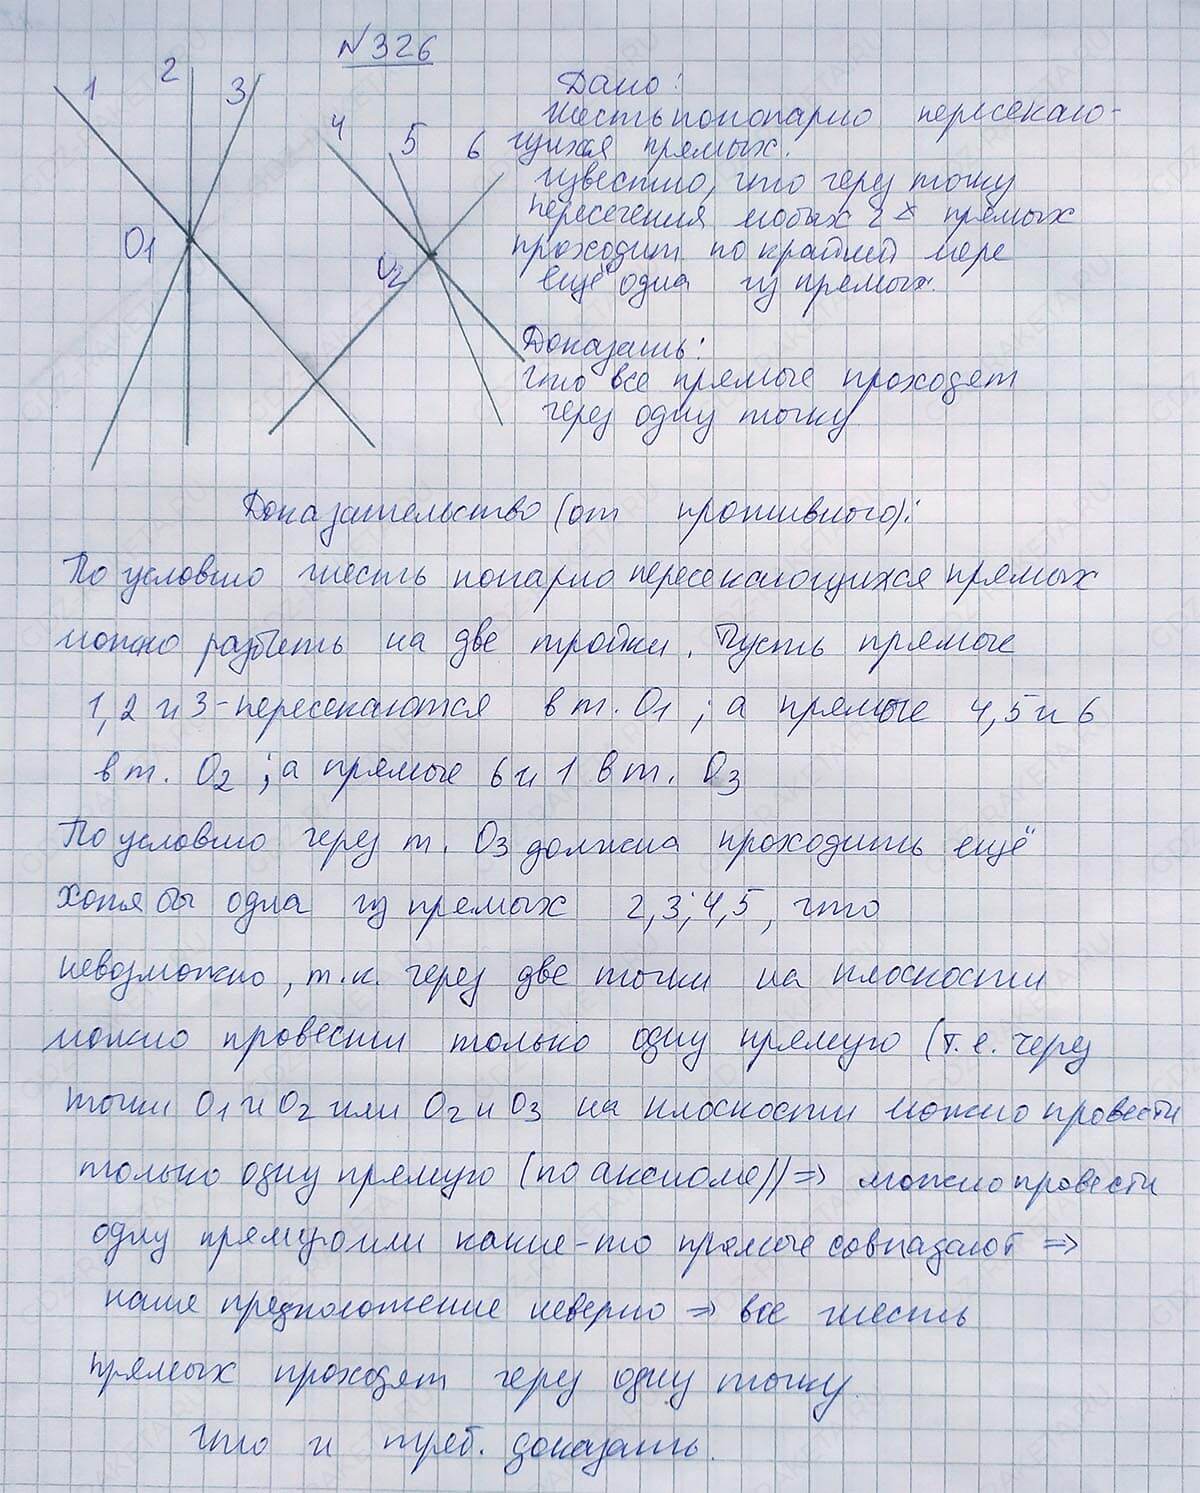 №326
1 2 3
4 5 6
O1 O2
Дано:
Шесть попопарно пересекаю-
щихся прямых.
Известно, что через точку
пересечения любых 2х прямых
проходит по крайней мере
ещё одна из прямых.
Доказать:
что все прямые проходят
через одну точку
Доказательство (от противного):
По условию шесть попарно пересекающихся прямых
можно разбить на две тройки. Пусть прямые
1,2 и 3 - пересекаются в т. O1 ; а прямые 4,5 и 6
в т. O2 ; а прямые 6 и 1 в т. O3
По условию через т. O3 должна проходить ещё
хотя бы одна из прямых 2,3,4,5, что
невозможно, т.к. через две точки на плоскости
можно провести только одну прямую (т.е. через
точки O1 и O2 или O2 и O3 на плоскости можно провести
только одну прямую (по аксиоме)) => можно провести
одну прямую или какие-то прямые совпадают =>
наше предположение неверно => все шесть
прямых проходят через одну точку.
Что и треб. доказать.